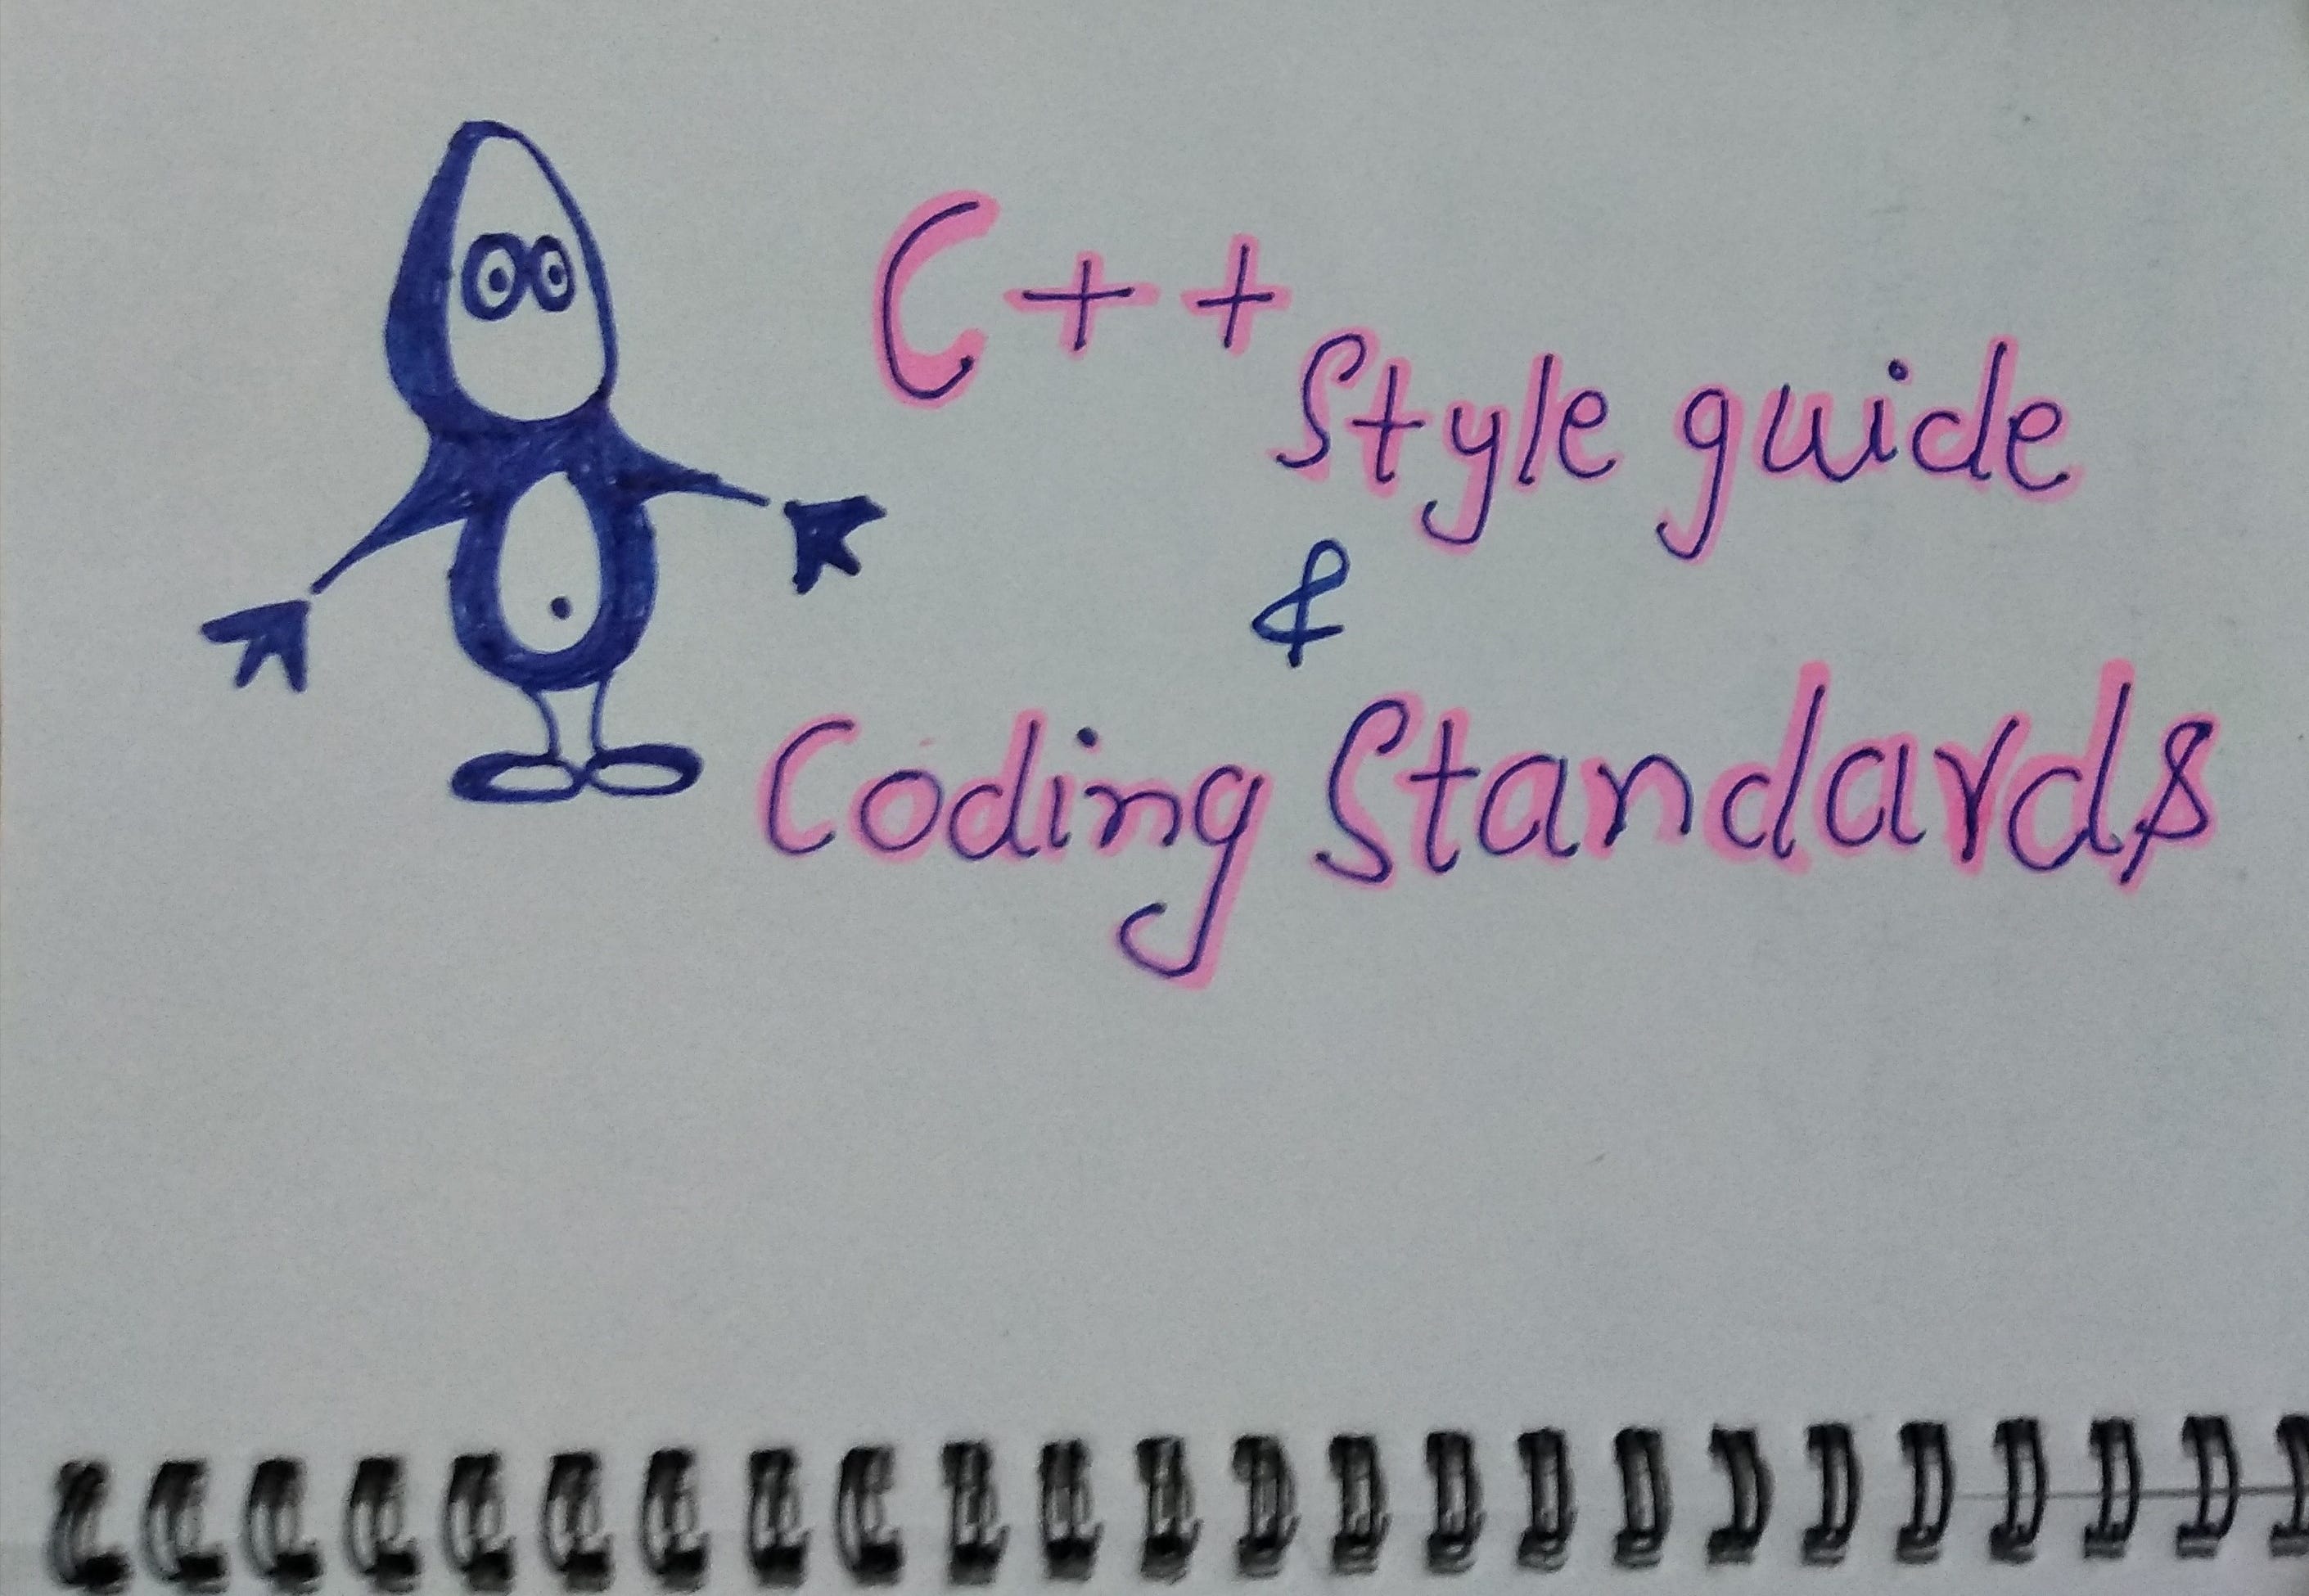 C++
Style guide
&
Coding Standards